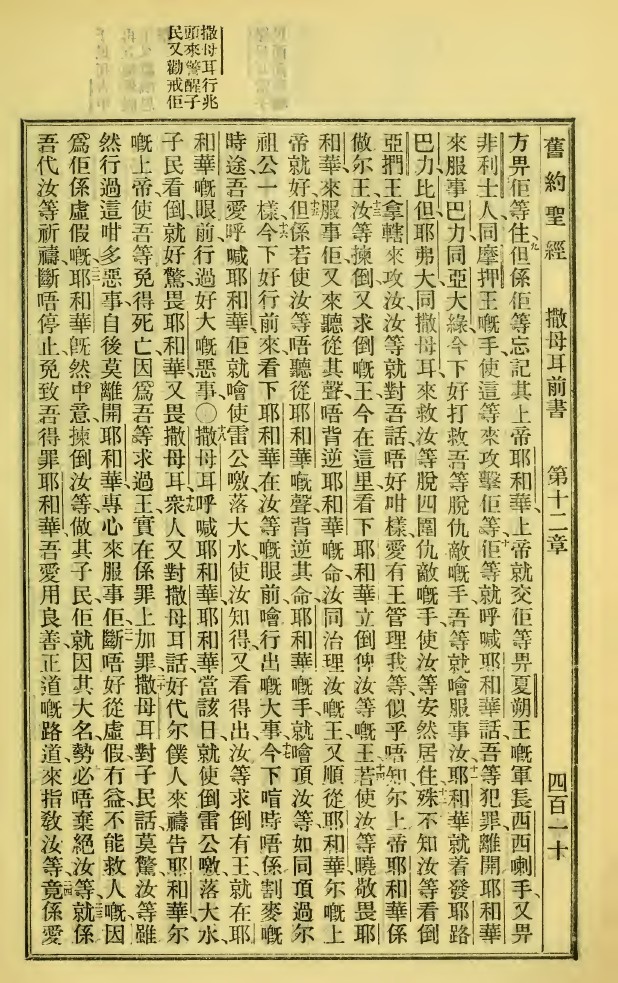 舊約聖經 撒母耳前書 第十二章 四百一十
撒母耳行兆
頭來警醒子
民又勸戒佢
方畀佢等住、九但係佢等忘記其上帝耶和華、上帝就交佢等畀夏朔王嘅軍長西西喇手、又畀
非利士人同摩押王嘅手、使這等來攻擊佢等、十佢等就呼喊耶和華話、吾等犯罪離開耶和華、
來服事巴力同亞大綠、今下好打救吾等脫仇敵嘅手、吾等就噲服事汝、十一耶和華就着發耶路
巴力比但耶弗大同撒母耳來救汝等脫四圍仇敵嘅手、使汝等安然居住、十二殊不知汝等看倒
亞捫王拿轄來攻汝、汝等就對吾話、唔好咁樣、愛有王管理我等、似乎唔知尔上帝耶和華係
做尔王、十三汝等揀倒又求倒嘅王、今在這里、看下耶和華立倒俾汝等嘅王、十四若使汝等曉敬畏耶
和華、來服事佢、又來聽從其聲、唔背逆耶和華嘅命、汝同治理汝嘅王、又順從耶和華尔嘅上
帝就好、十五但係若使汝等唔聽從耶和華嘅聲、背逆其命、耶和華嘅手、就噲頂汝等、如同頂過尔
祖公一樣、十六今下好行前來、看下耶和華在汝等嘅眼前噲行出嘅大事、十七今下喑時唔係割麥嘅
時途、吾愛呼喊耶和華、佢就噲使雷公噭落大水、使汝知得、又看得出汝等求倒有王、就在耶
和華嘅眼前行過好大嘅惡事、〇十八撒母耳呼喊耶和華、耶和華當該日就使倒雷公噭落大水、
子民看倒就好驚畏耶和華、又畏撒母耳、十九衆人又對撒母耳話、好代尔僕人來禱告耶和華尔
嘅上帝、使吾等免得死亡、因爲吾等求過王、實在係罪上加罪、二十撒母耳對子民話、莫驚、汝等雖
然行過這咁多惡事、自後莫離開耶和華、專心來服事佢、二一斷唔好從虛假冇益不能救人嘅、因
爲佢係虛假嘅、二二耶和華旣然中意揀倒汝等做其子民、佢就因其大名勢必唔棄絕汝等、二三就係
吾代汝等祈禱、斷唔停止、免致吾得罪耶和華、吾愛用良善正道嘅路道、來指教汝等、二四竟係愛